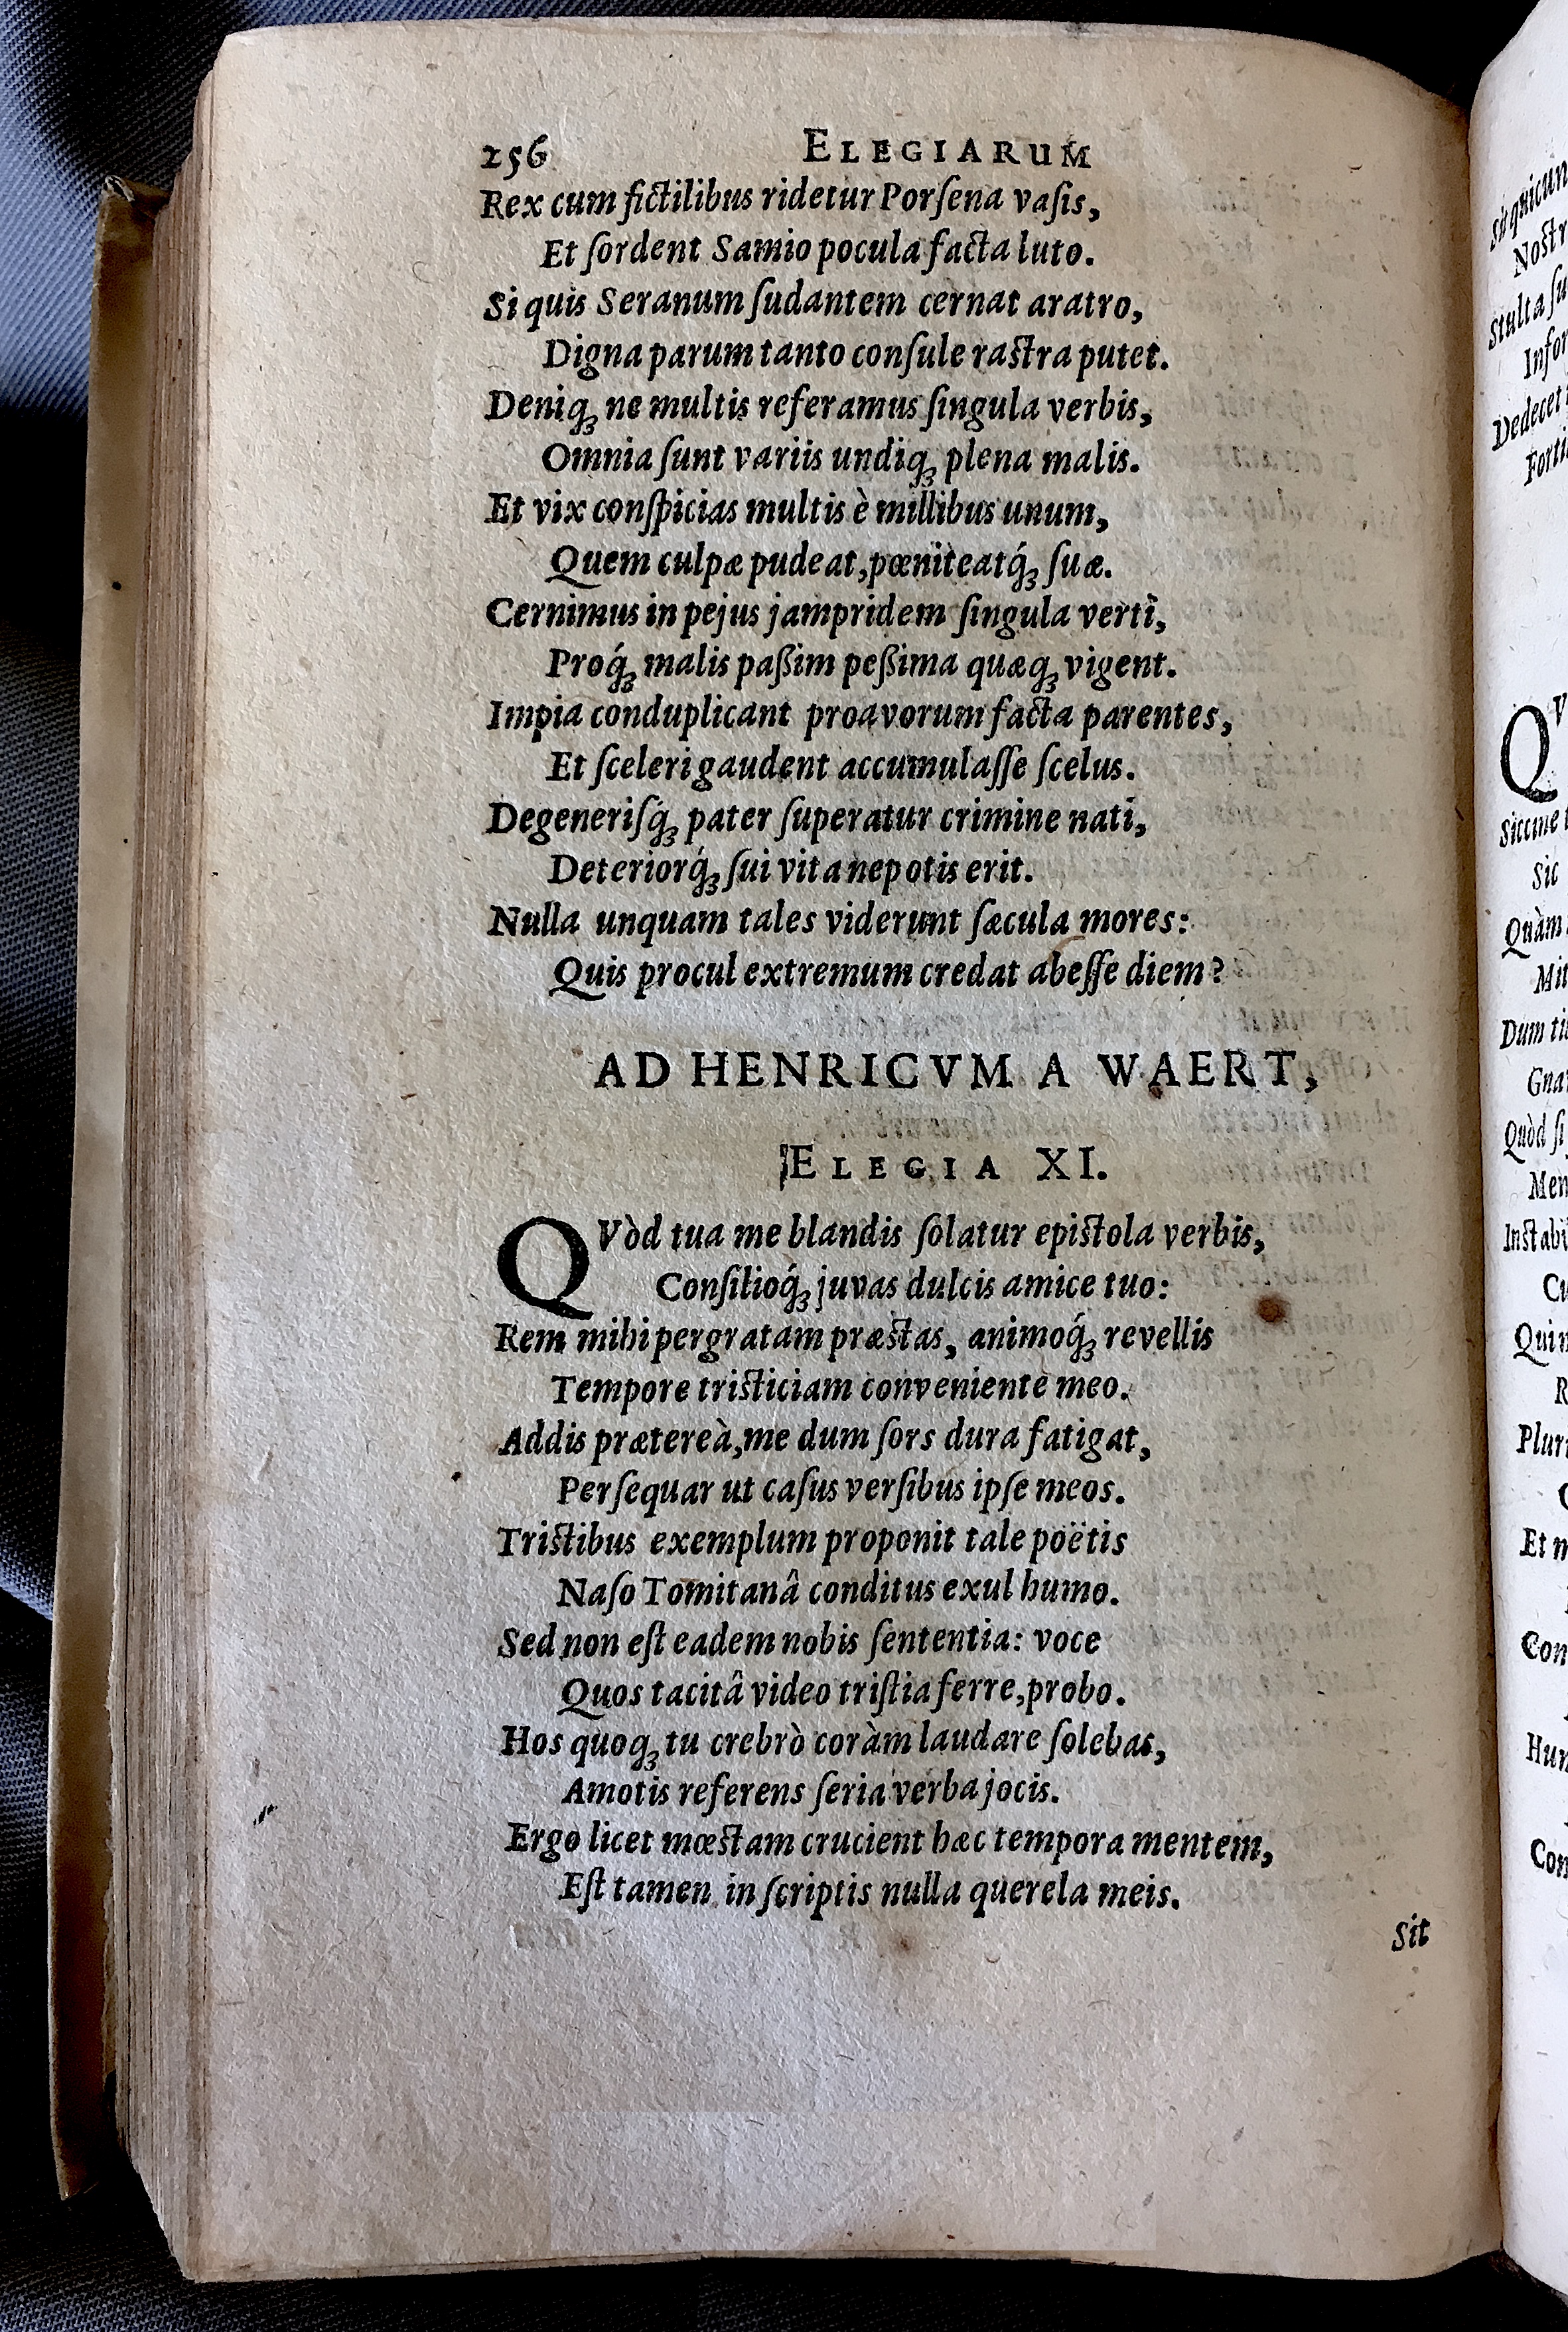 256 ELEGIARUM
Rex cum fictilibus ridetur Porſena vaſis,
Et ſordent Samio pocula facta luto.
Si quis Seranum ſudantem cernat aratro,
Digna parum tanto conſule raſtra putet.
Deniqꝫ ne multis referamus ſingula verbis,
Omnia ſunt variis undiqꝫ plena malis.
Et vix conſpicias multis è millibus unum,
Quem culpæ pudeat, pœniteatq́ꝫ ſuæ.
Cernimus in pejus jampridem ſingula verti,
Proq́ꝫ malis paßim peßima quæqꝫ vigent.
Impia conduplicant proavorum facta parentes,
Et ſceleri gaudent accumulaſſe ſcelus.
Degeneriſq́ꝫ pater ſuperatur crimine nati,
Deteriorq́ꝫ ſui vita nepotis erit.
Nulla unquam tales viderunt ſæcula mores:
Quis procul extremum credat abeſſe diem?
AD HENRICVM A WAERT,
ELEGIA XI.
QVòd tua me blandis ſolatur epiſtola verbis,
Conſilioq́ꝫ juvas dulcis amice tuo:
Rem mihi pergratam præſtas, animoq́ꝫ revellis
Tempore triſticiam conveniente meo.
Addis prætereà, me dum ſors dura fatigat,
Perſequar ut caſus verſibus ipſe meos.
Triſtibus exemplum proponit tale poëtis
Naſo Tomitanâ conditus exul humo.
Sed non eſt eadem nobis ſententia: voce
Quos tacitâ video triſtia ferre, probo.
Hos quoqꝫ tu crebrò coràm laudare ſolebas,
Amotis referens ſeria verba jocis.
Ergo licet mœſtam crucient hæc tempora mentem,
Eſt tamen in ſcriptis nulla querela meis.
Sit